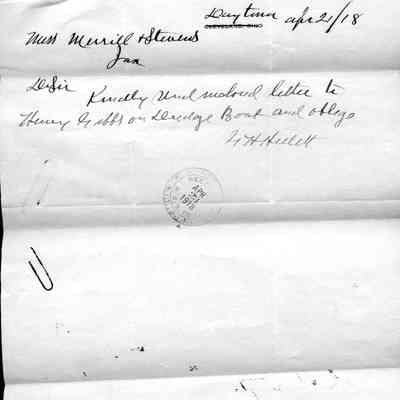 Daytona Apr 21/18
CLEVELAND, OHIO
Mess Merrill & Stevens
Jax
D Sir
Kindly send inclosed letter to
Henry Gibbs on Dredge Boat and oblige
APR
21
1918